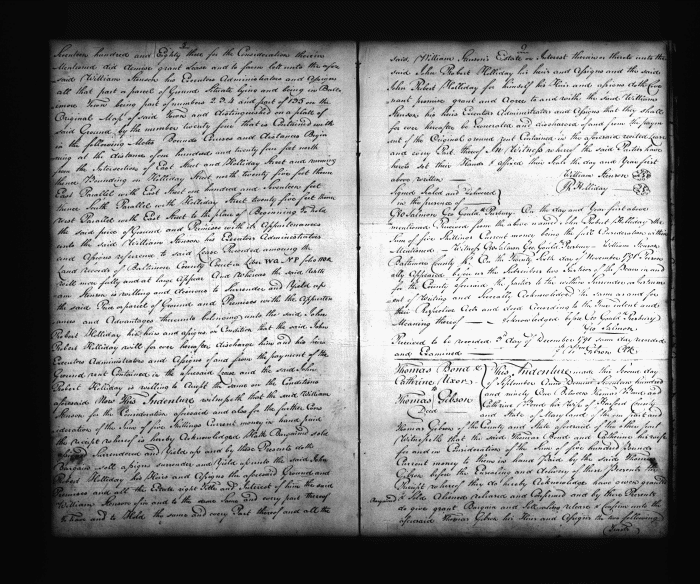 Seventeen hundred and Eighty three for the Consideration therein
Mentioned did demise grant Lease and to farm lett unto the afore
said William Henson his Executors Administrators and Assigns
all that part a parcel of Ground Situate lying and being in Balti
more Town being part of numbers 2.3.4 and part of 135 on the
Original Map of said Town and distinguished on a platt of
said Ground by the number twenty four that is Contained with
in the following Metes Bounds Courses and distances Begin
ning at the distance of one hundred and twenty five feet north
from the Intersection of East Street and Holliday Street and running
thence Bounding on Holliday Street north twenty five feet thence
East Parallel with East Street one hundred and Seventeen feet
thence South Parallel with Holliday Street twenty five feet thence
West Parallel with East Street to the place of Beginning to hold
the said piece of Ground and Premises with its Appurtenances
unto the said William Henson his Executors Administrators
and Assigns reference to said Lease Recorded among the
Land Records of Baltimore County Court in Liber WG N
will more fully and at large Appear And Whereas the said Willi
am Henson is willing and desirous to Surrender and Yield up
the said Piece a parcel of Ground and Premises with the Appurten
ances and Advantages thereunto belonging unto the said John
Robert Holliday his heirs and assigns on Condition that the said John
Robert Holliday will for ever hereafter discharge him and his heirs
Executors Administrators and Assigns of and from the payment of the
Ground rent Contained in the aforesaid Lease and the said John
Robert Holliday is willing to Accept the same on the Conditions
aforesaid Now This Indenture witnesseth that the said William
Henson for the Consideration aforesaid and also for the further Con
sideration of the Sum of five Shillings Current money in hand paid
the receipt whereof is hereby Acknowledged Hath Bargained sold
Surrendered and Yielded up and by these Presents doth
Bargain sell assign surrender and Yield up unto the said John
Robert Holliday his Heirs and Assigns the aforesaid Ground and
Premises and all the Estate right Title and Interest of him the said
William Henson of in and to the same and every part thereof
to have and to Hold the same and every Part thereof and all the
said William Henson's Estate or Interest therein unto the
said John Robert Holliday his heirs and Assigns and the said
John Robert Holliday for himself his Heirs and assigns doth Cove
nant promise grant and Agree to and with the said William
Henson his heirs Executors Administrators and Assigns that they shall
for ever hereafter be Exonerated and discharged of and from the paym
ent of the Original Ground rent Contained in the aforesaid recited Lease
and every Part thereof In Witness whereof the said Parties have
hereto set their Hands & affixed their Seals the day and Year first
above written
William Henson
JR Holliday
Signed Sealed and delivered
in the presence of
Geo Salmon Geo Gould Presbury On the day and Year first above
mentioned Received from the above named John Robert Holliday the
Sum of five Shillings Current money being the first Consideration within
Mentioned Witness Geo Salmon Geo Gould Presbury William Henson
Baltimore County Sc On the Twenty Sixth day of November 1791 Person
ally Appeared before us the Subscribers two Justices of the Peace in and
for the County aforesaid the parties to the within Surrender or Instrum
ent of Writing and Severally Acknowledged the same as and for
their Respective Acts and deed According to the true intent and
Meaning thereof Acknowledged before Geo Gould Presbury
Geo Salmon
Received to be recorded 5 day of December 1791 same day recorded
and Examined Gibson Clk
Thomas Bond &
Catherine Uxor
To
Thomas Gibson
Deed
This Indenture made this Second day
of September Anno Domini Seventeen hundred
and ninety One Between Thomas Bond and
Catherine his Wife of Harford County
and State of Maryland of the one part and
Thomas Gibson of the County and State aforesaid of the other part
Witnesseth that the said Thomas Bond and Catherine his wife
for and in Consideration of the Sum of five hundred Pounds
Current money to them in hand Paid by the said Thomas
Gibson before the Ensealing and delivery of these Presents the
Receipt whereof they do hereby Acknowledge have given granted
Bargained & Sold Aliened released and Confirmed and by these Presents
do give grant Bargain and Sell release & Confirm unto the
aforesaid Thomas Gibson his Heirs and Assigns the two following
Tracts